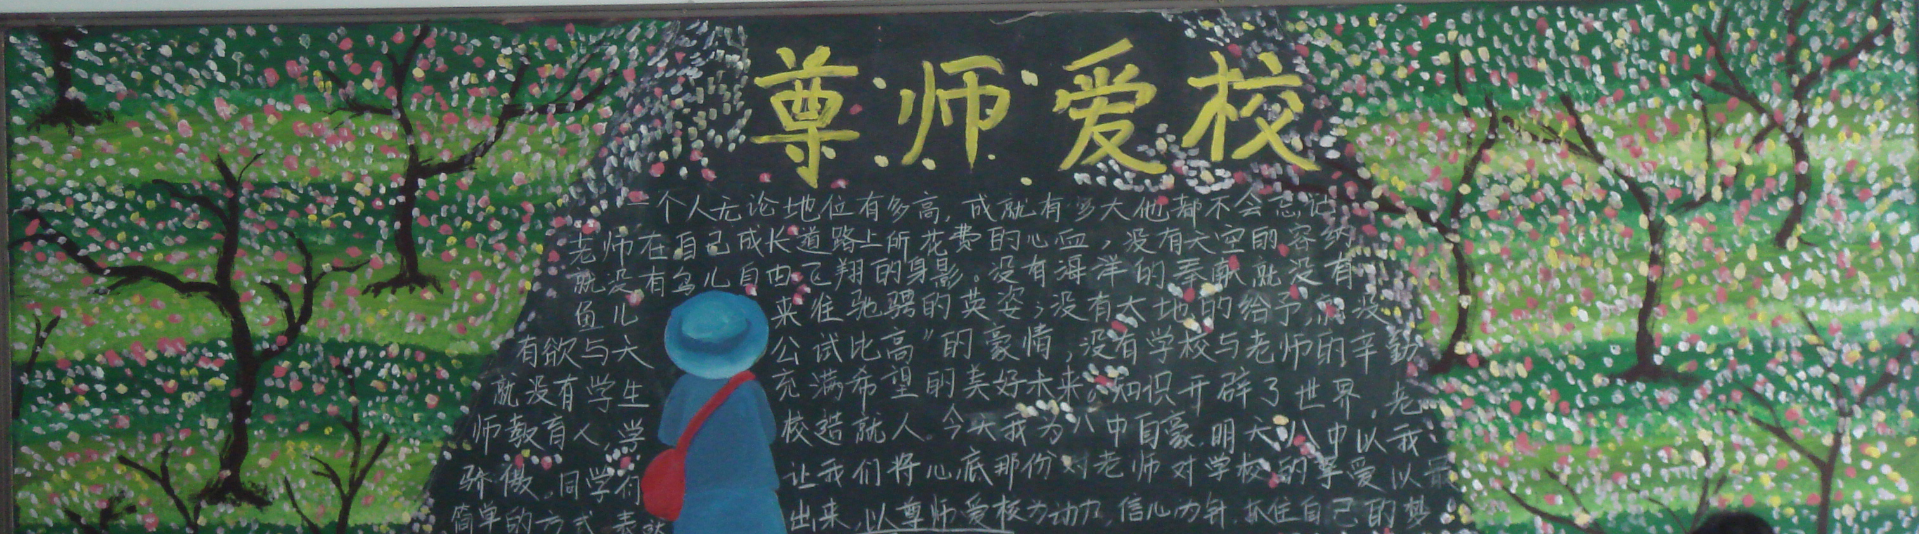 尊师爱校
一个人无论地位有多高,成就有多大他都不会忘记
老师在自己成长道路上所花费的心血,没有天空的容纳
就没有鸟儿自由飞翔的身影。没有海洋的奉献就没有
鱼儿来往驰骋的英姿;没有大地的给予,就没
有欲与天公试比高"的豪情,没有学校与老师的辛勤
就没有学生充满希望的美好未来。知识开辟了世界,老
师教育人,学校造就人。今天我为八中自豪,明天八中以我
骄傲。同学们让我们将心底那份对老师对学校的挚爱以最
简单的方式表达出来,以尊师爱校为动力,信心为针,抓住自己的梦